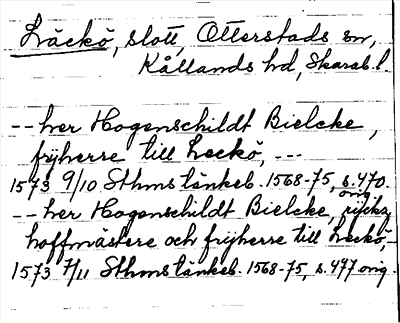 Läckö, slott, Otterstads sn,
Kållands hd, Skarab. l.
-- her Hogenschildt Bielcke,
frijherre till Leckö, ---
1573 9/10 Sthms tänkeb. 1568-75, s. 470
orig.
-- her Hogenschildt Bielcke, rijckz
hoffmästere och frijherre till Leckö,-
1573 7/11 Sthms tänkeb. 1568-75, s. 477 orig.